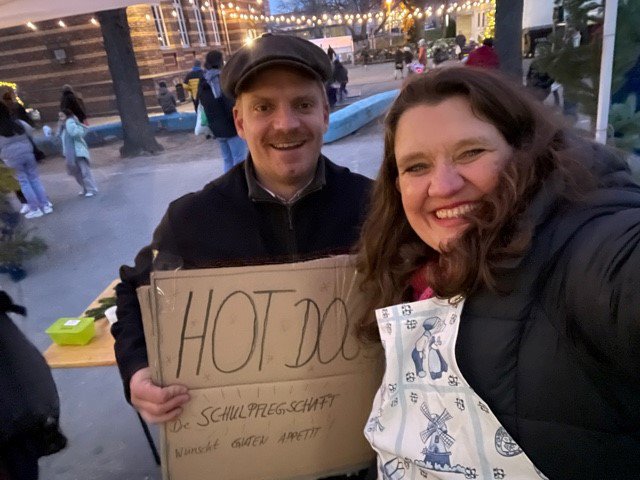 HOT DOG
De SCHULPFLEGSCHAFT
wünscht GUTEN APPETIT